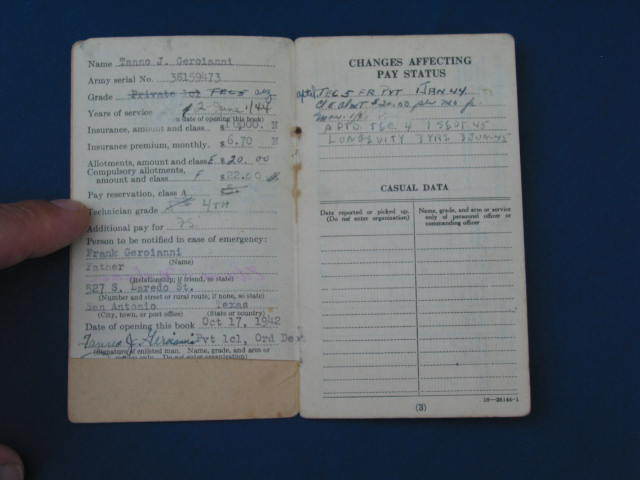 Name Tanno J. Geroianni
Army serial No. 38159473
Grade Private 1cl TEC5
Years of service 2 June 44
(as of date of opening this book)
Insurance, amount and class $10000. N
Insurance premium, monthly. $6.70 N
Allotments, amount and class E $20.00
Compulsory allotments,
amount and class F $22.00
Pay reservation, class A
Technician grade 4TH
Additional pay for
Person to be notified in case of emergency:
Frank Geroianni
(Name)
Father
(Relationship; if friend, so state)
527 S. Laredo St.
(Number and street or rural route; if none, so state)
San Antonio Texas
(City, town, or post office) (State or country)
Date of opening this book Oct 17, 1942
Pvt 1cl, Ord Dept
(Signature of enlisted man. Name, grade, and arm or
service only. Do not enter organization)
CHANGES AFFECTING
PAY STATUS
TEC 5 FR PVT 1 JAN 44
Cl E Alot $20.00 per mo fr.
APTD TEC. 4 1 SEPT 45
LONGEVITY 3YRS 3JUN45
CASUAL DATA
Date reported or picked up.
(Do not enter organization)
Name, grade, and arm or service
only of personnel officer or
commanding officer
(3)
16—28144-1